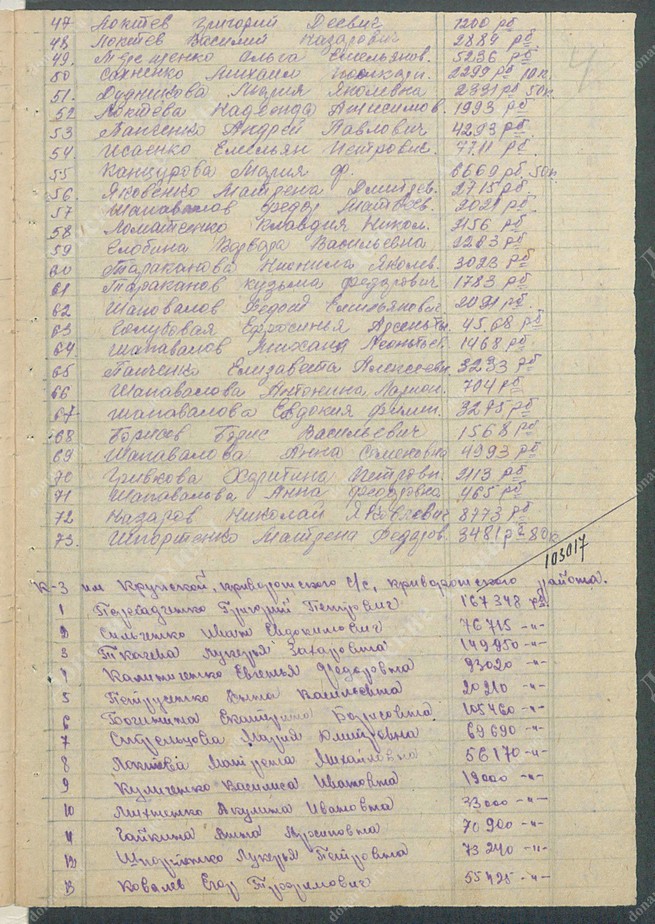 47 Локтев Григорий 1200 рб
48 Локтев Василий Назарович 2884 рб
49. Ольга Емельянов. 5236 рб
50 Михаил 2299 рб 10 к.
51. Дудникова Мария Яковлевна 2391 рб 50к.
52 Локтева Надежда Анисимов. 1993 рб
53 Панченко Андрей Павлович 4293 рб.
54 Исаенко Емельян Петрович. 7711 рб
55 Канцурова Мария Ф. 6660 рб. 50к.
56. Яковенко Матрена Дмитрев. 2715 рб.
57 Шаповалов Федор Матвеев. 2021 рб
58 Ломатченко Клавдия Никол. 2156 рб
59 Елобина Варвара Васильевна 2203 рб
60 Тараканова Неонила Яковлев. 3023 рб
61 Тараканов Кузьма Федорович 1783 рб
62 Шаповалов Федот Емельянович 2091 рб
63 Голубовая Ефросинья Арсентьев. 4508 рб
64 Шаповалов Михаил Леонтьев. 1468 рб
65 Панченко Елизавета Алексеевн. 3233 рб
66 Шаповалова Антонина Ларион. 704 рб
67 Шаповалова Евдокия Филип. 3275 рб
68 Борисов Борис Васильевич 1568 рб
69 Шаповалова Анна Семеновна 4993 рб
70 Гривкова Харитина Петровн. 2113 рб
71 Шаповалова Анна Федоровна 465 рб
72 Назаров Николай Яковлевич 8773 рб
73. Шпортенко Матрена Федоров. 3481 рб 80к
103017
К-з им Крупской, криворожского с/с, криворожского района.
1 Передадченко Григорий Петрович 167348 рб.
2 Сильченко Иван Евдокимович 76715 -"-
3 Ткачева Лукерья Захаровна 149950 -"-
4 Калиниченко Евгенья Федоровна 93020 -"-
5 Петрусенко Анна Васильевна 20210 -"-
6 Богинина Екатерина Борисовна 105460 -"-
7 Стрельцова Мария Дмитровна 69690 -"-
8 Локтева Матрена Михайловна 56170 -"-
9 Кулиненко Василиса Ивановна 19000 -"-
10 Михненко Акулина Ивановна 33000 -"-
11 Гайкина Анна 70900 -"-
12 Шпортенко Лукерья Петровна 73240 -"-
13 Ковалев Егор Трофимович 55425 -"-